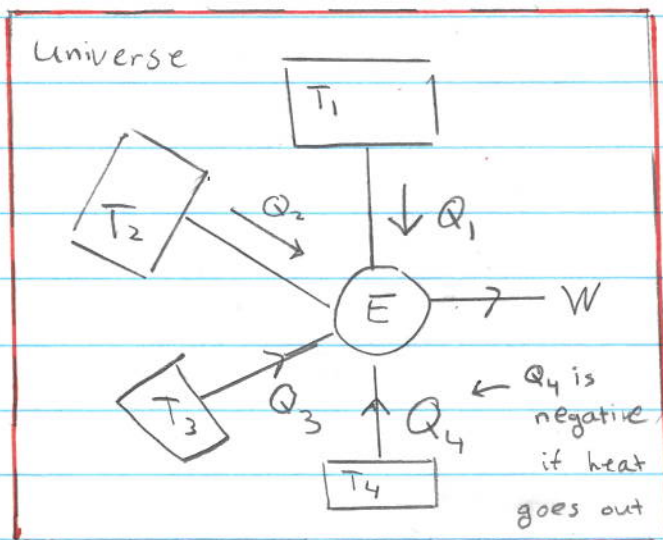 Universe
T₁
T₂
Q₂
Q₁
E
W
T₃
Q₃
Q₄
← Q₄ is
negative
if heat
goes out
T₄